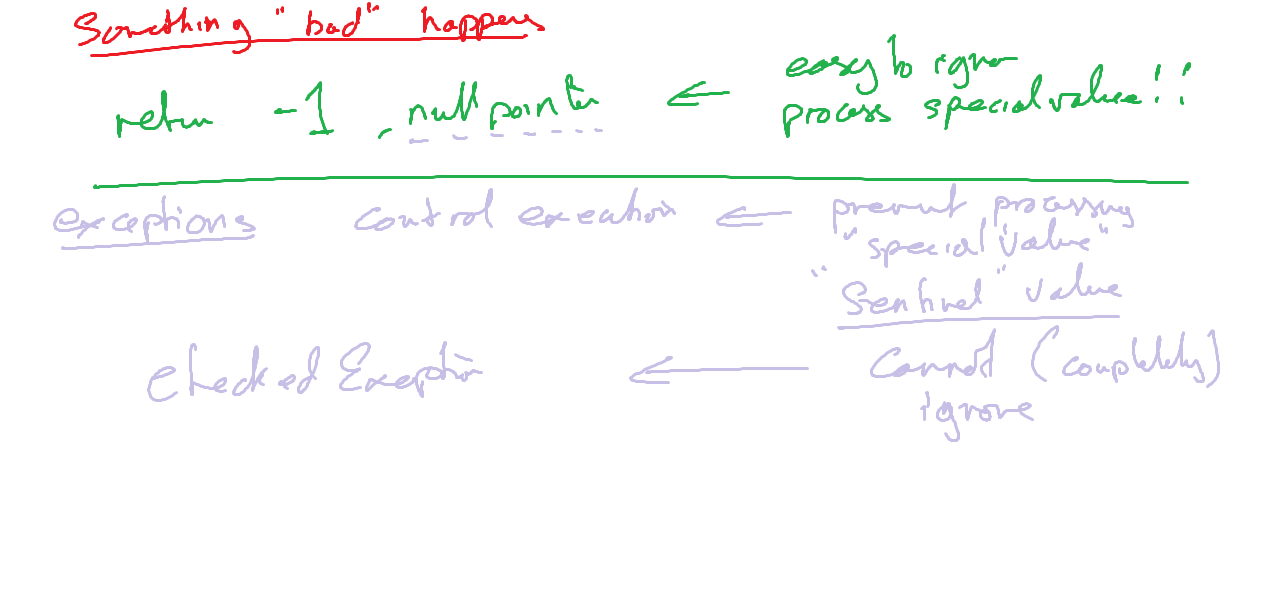 Something "bad" happens
return -1, null pointer ← easy to ignore
process special value!!
exceptions control execution ← prevent processing
"special value"
"Sentinel" value
Checked Exception ← Cannot (completely)
ignore